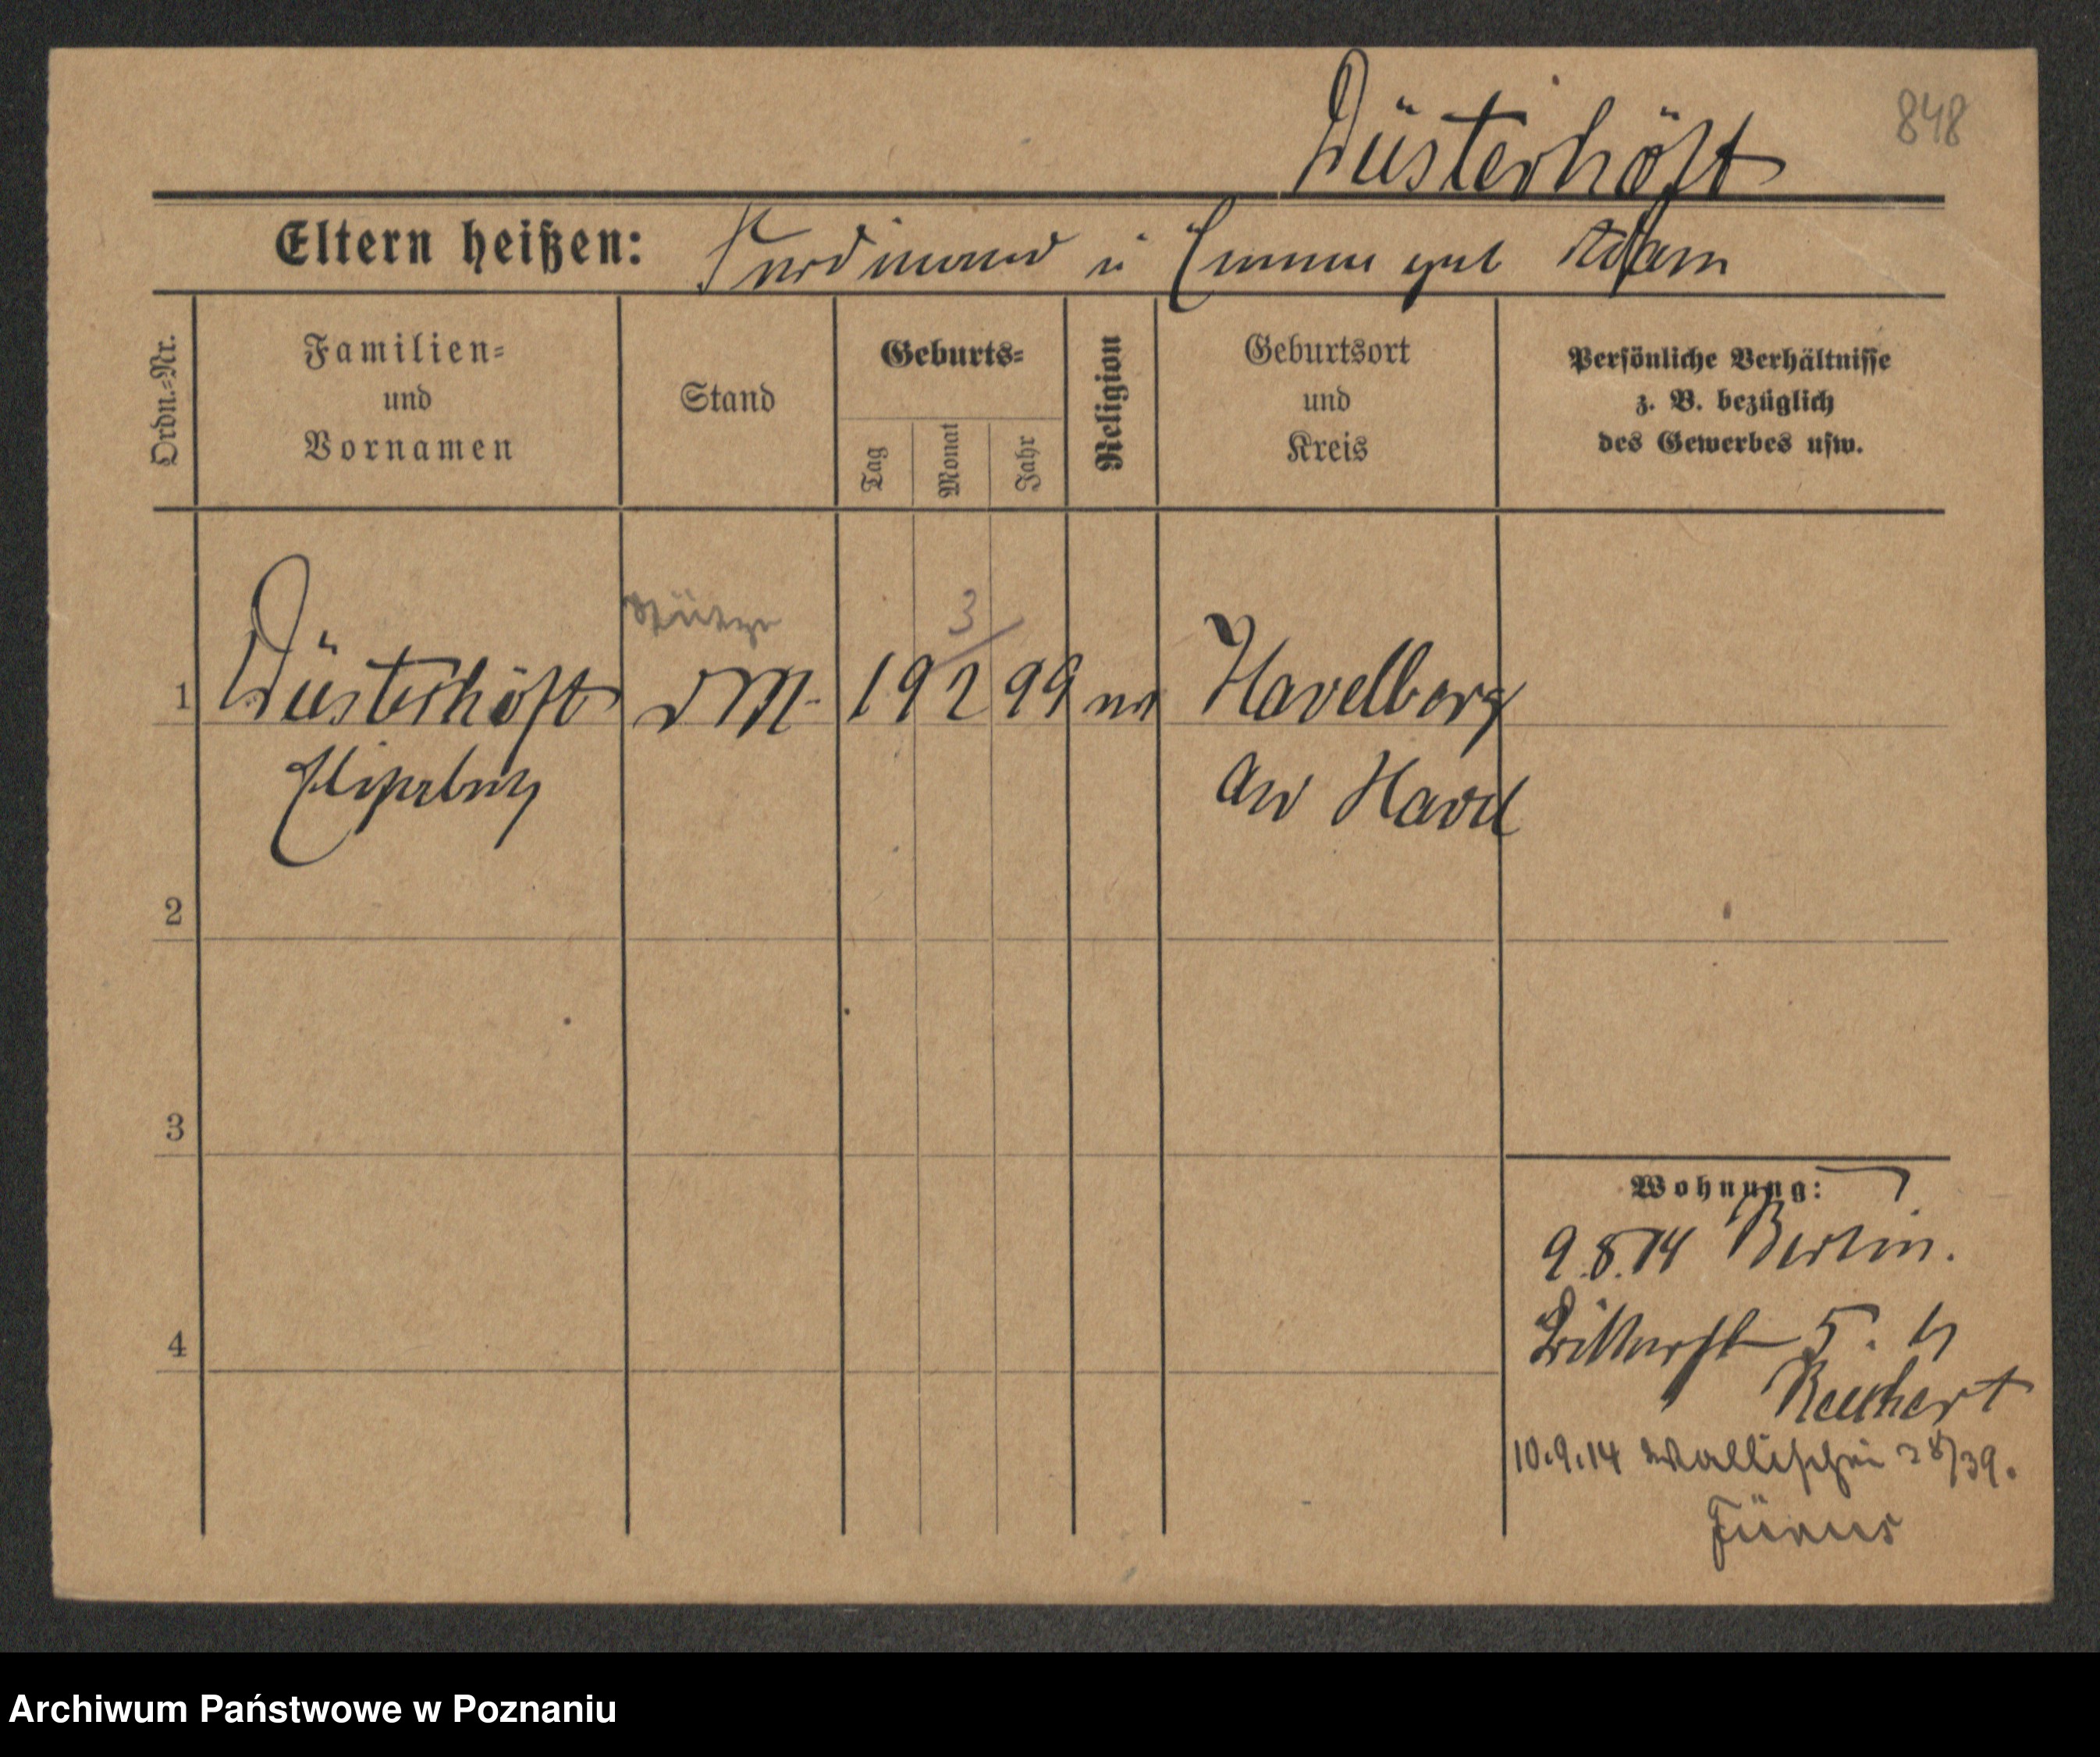 848
Düsterhöft
Eltern heißen: Ferdinand u Emma geb Adam
Ordn.-Nr.
Familien- und Vornamen
Stand
Geburts-
Tag
Monat
Jahr
Religion
Geburtsort und Kreis
Persönliche Verhältnisse z. B. bezüglich des Gewerbes usw.
Stütze
3
1 Düsterhöft 19 2 99 Havelberg
Elisabeth
Havel
2
3
4
Wohnung:
9.8.14 Berlin.
5.
Reichert
10.9.14 Wallischei 38/39.
Archiwum Państwowe w Poznaniu